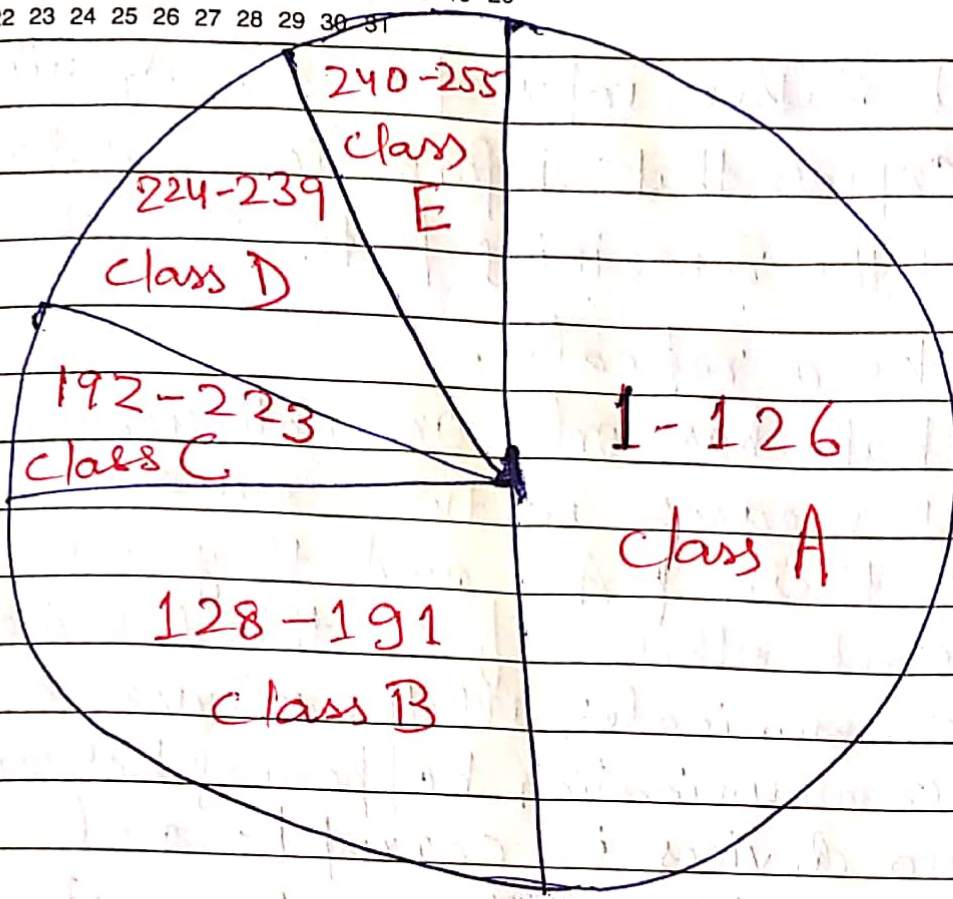 22 23 24 25 26 27 28 29 30 31
240-255
class
E
224-239
class D
192-223
class C
1-126
class A
128-191
class B